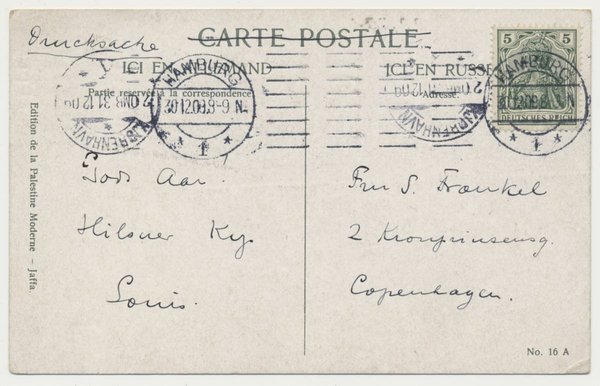 Drucksache
CARTE POSTALE
ICI EN
AND
ICI EN RUSS
Partie reservée à la correspondence
Adresse.
HAMBURG
30.12.09.8-9 N.
* 1 *
KJØBENHAVN
OMB 31.12.09
HAMBURG
KJØBENHAVN
5 5
DEUTSCHES REICH
Godt Aar!
Hilsner
Louis.
Fru S. Fraenkel
2 Kronprinsensg.
Copenhagen.
Edition de la Palestine Moderne – Jaffa.
No. 16 A